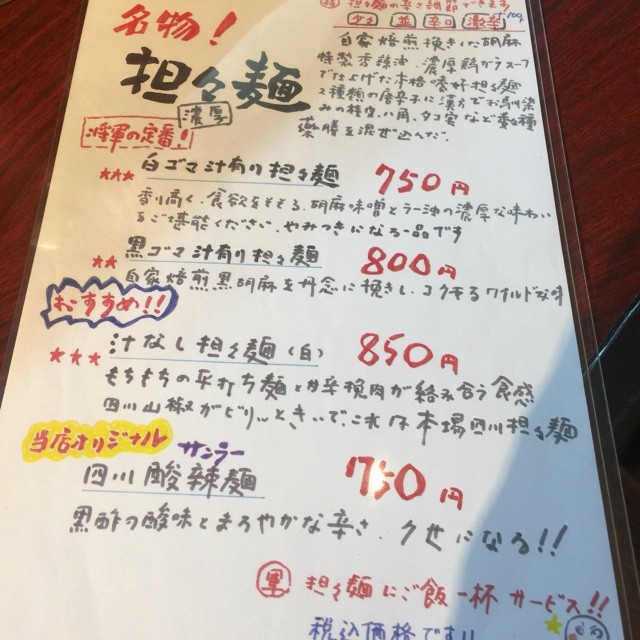 担々麺の辛さ調節できます
少々 並 辛口 激辛
名物!
担々麺
濃厚
自家焙煎挽きした胡麻
特製香辣油、濃厚鶏ガラスープ
で仕上げた本格香杯担々麺
2種類の唐辛子に漢方でお馴染
みの桂皮、八角、タコ実など
薬膳を混ぜ込んだ.
将軍の定番!
★★★ 白ゴマ汁有り担々麺 750円
香り高く、食欲をそそる、胡麻味噌とラー油の濃厚な味わい
をご堪能ください、やみつきになる一品です
★★ 黒ゴマ汁有り担々麺 800円
自家焙煎黒胡麻を丹念に挽きし、コクでるワイルド
おすすめ!!
★★★ 汁なし担々麺(白) 850円
もちもちの平打ち麺と辛挽肉が絡み合う食感
四川山椒がピリッときいて、これは本場四川担々麺
当店オリジナル
サンラー
四川酸辣麺 750円
黒酢の酸味とまろやかな辛さ、クセになる!!
担々麺にご飯一杯サービス!!
税込価格です!!